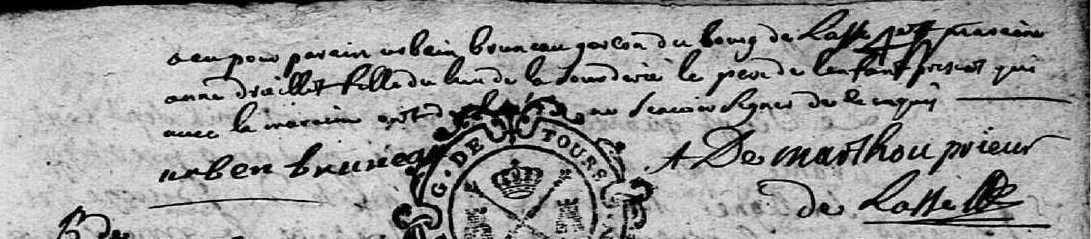 a eu pour parein urbain bruneau garcon du bourg de Lasse et pour mareine
anne drillot fille du lieu de la le pere de lenfant present qui
avec la mareine ont ne scavoir signer de ce enquis
urben bruneau
A De marthou prieur
de Lasse
G. DE TOURS